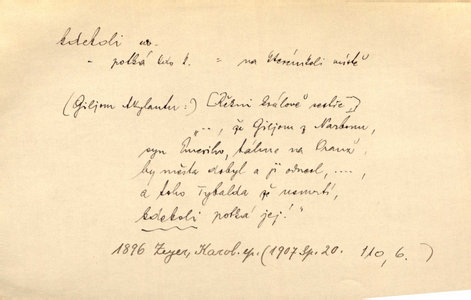 kdekoli adv.
~ potká kdo k. = na kterémkoli místě
(Giljom Mylantu:) [Řekni králově sestře],
"..., že Giljom z Narbonu,
syn Emeriho, táhne na Oranž,
by města dobyl a ji odnesl, ...,
a toho Tybalda že usmrtí,
kdekoli potká jej!"
1896 Zeyer, Karol. ep. (1907 Sp. 20. 110, 6.)